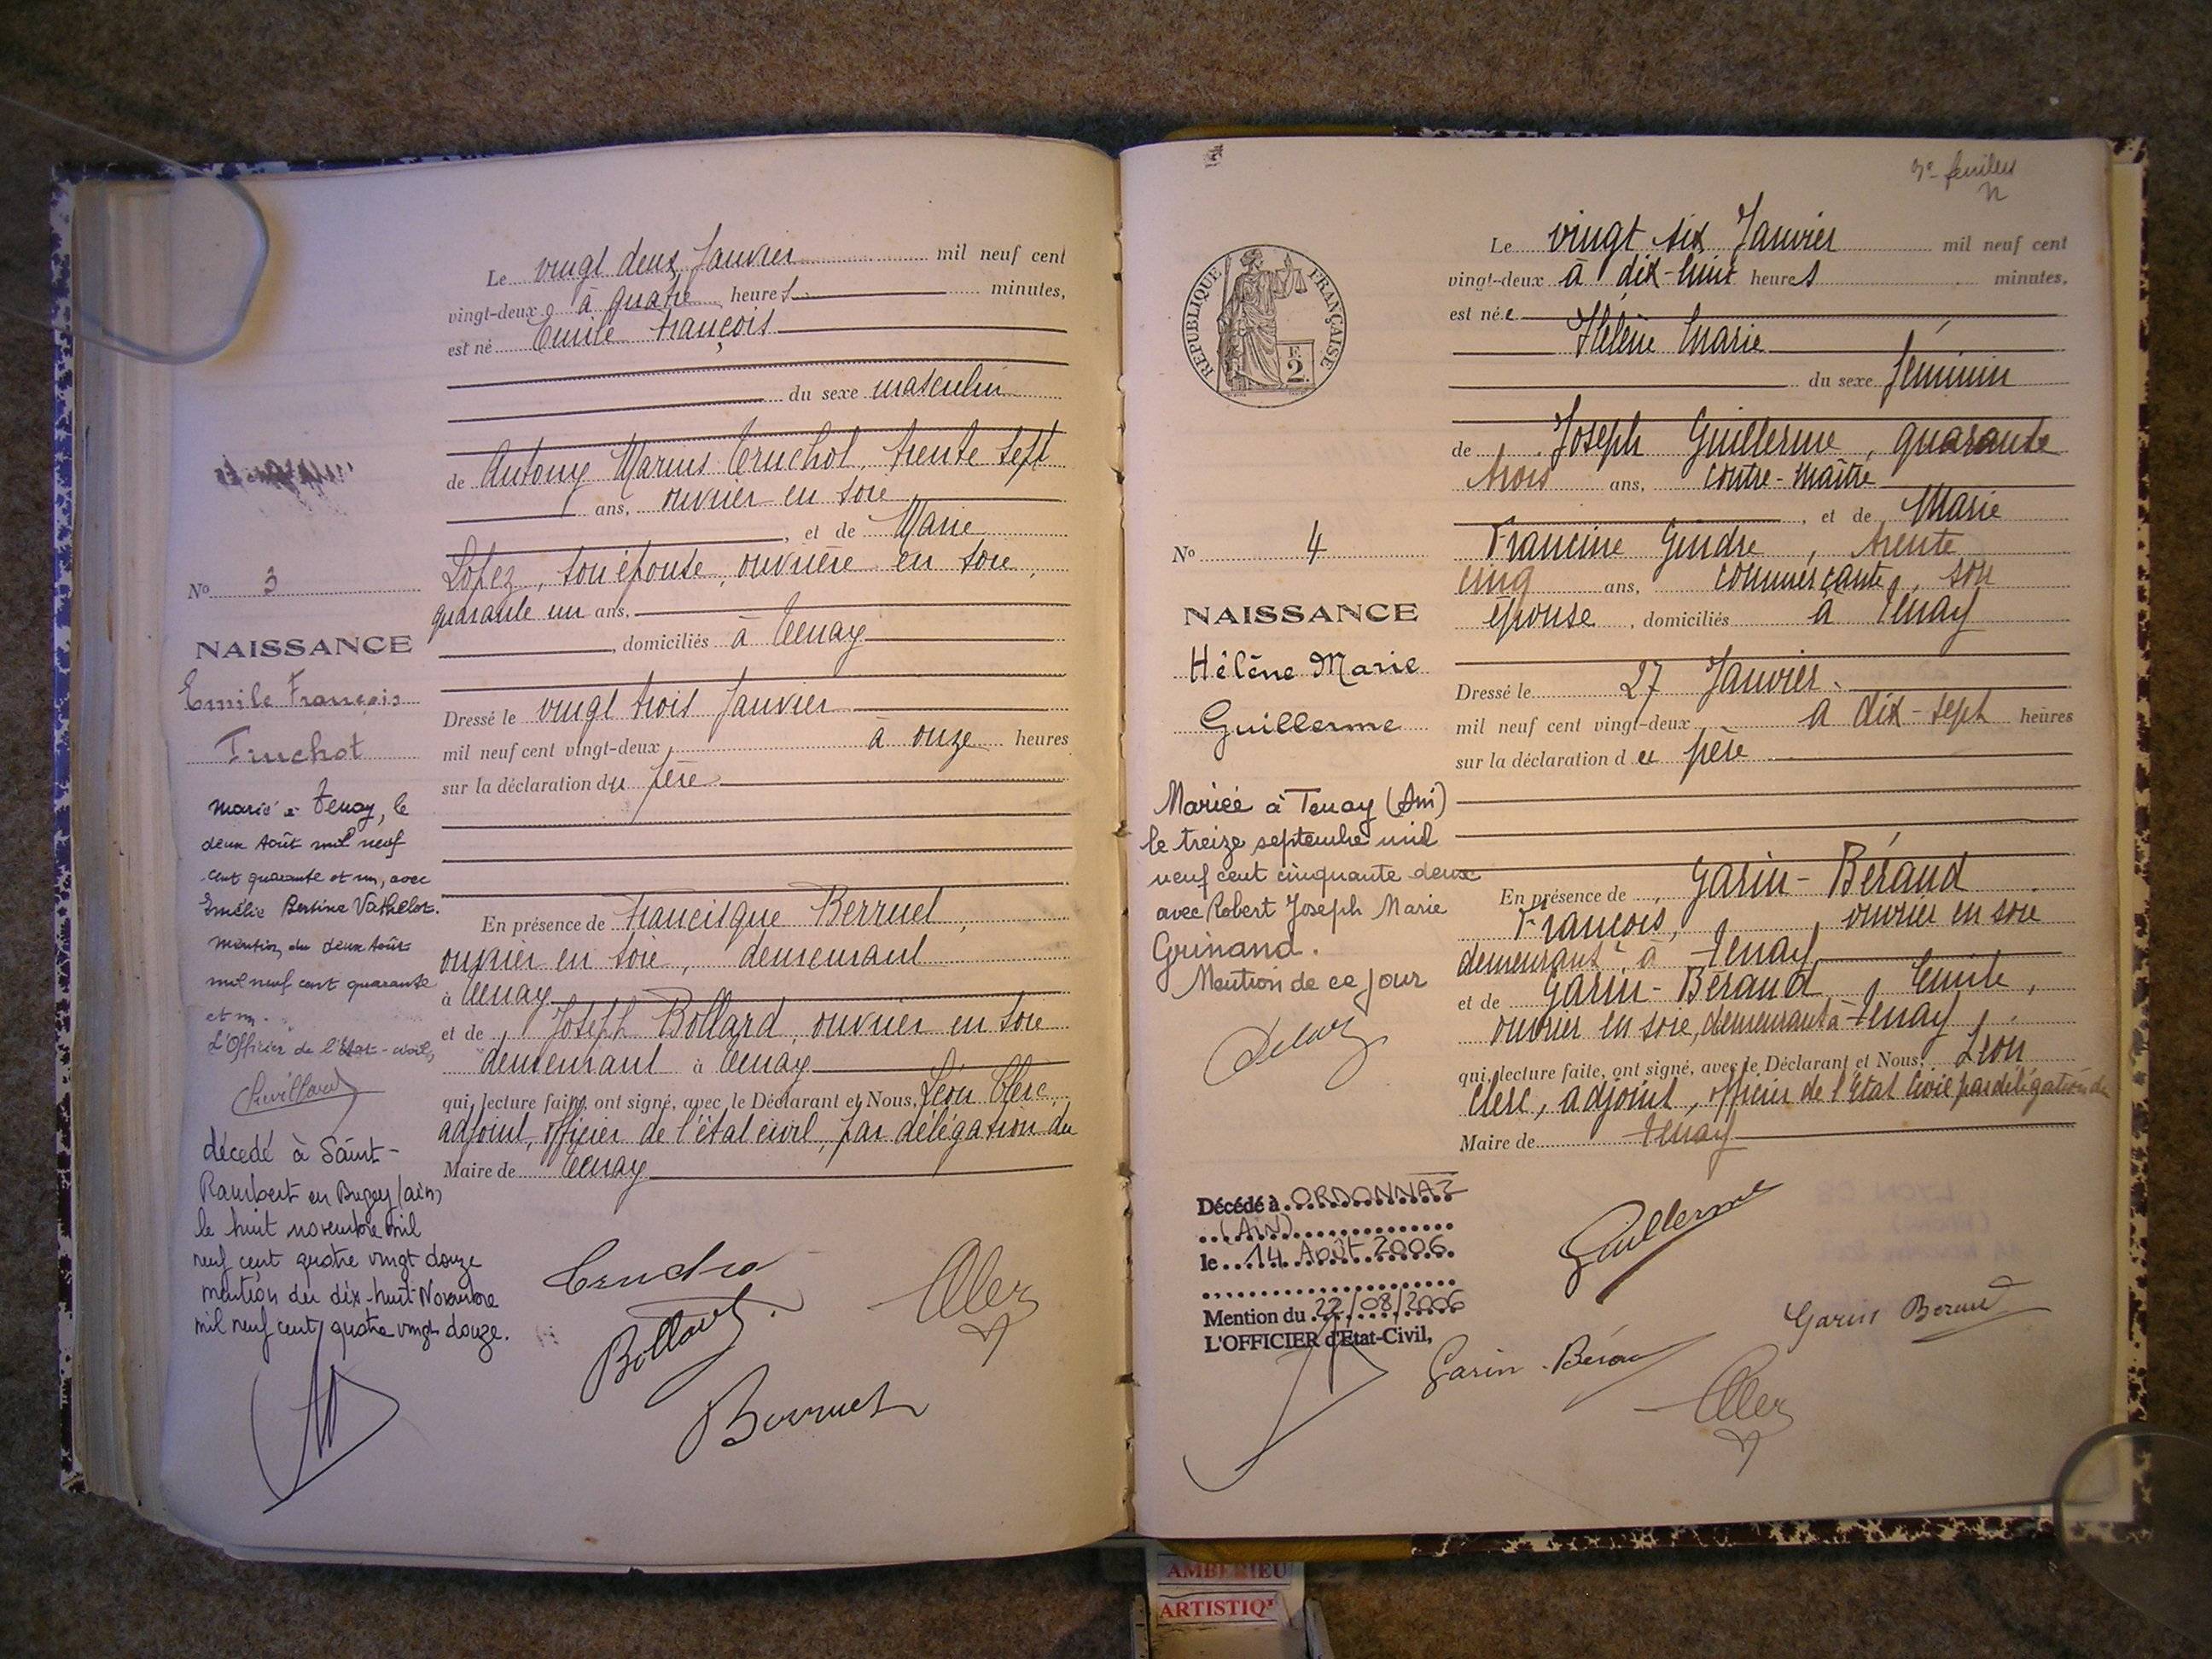 Le vingt deux Janvier mil neuf cent
vingt-deux à quatre heures minutes,
est né Emile François
du sexe masculin
de Antony Marius Truchot, trente sept
ans, ouvrier en soie
, et de Marie
Lopez, son épouse, ouvrière en soie,
quarante un ans,
, domiciliés à Tenay
Dressé le vingt trois Janvier
mil neuf cent vingt-deux, à onze heures
sur la déclaration du père
En présence de Francisque Berruet,
ouvrier en soie, demeurant
à Tenay
et de Joseph Bollard, ouvrier en soie
demeurant à Tenay
qui, lecture faite, ont signé, avec le Déclarant et Nous, Léon Clerc,
adjoint, officier de l'état civil, par délégation du
Maire de Tenay
No 3
NAISSANCE
Emile François
Truchot
marié à Tenay, le
deux Août mil neuf
cent quarante et un, avec
Emélie Bertine Vathelot.
Mention du deux Août
mil neuf cent quarante
et un.
L'Officier de l'Etat-civil,
décédé à Saint-
Rambert en Bugey (ain)
le huit novembre mil
neuf cent quatre vingt douze
mention du dix-huit Novembre
mil neuf cent quatre vingt douze.
Truchot
Bollard
Berruet
Clerc
feuillet
REPUBLIQUE FRANÇAISE
2
Le vingt six Janvier mil neuf cent
vingt-deux à dix-huit heures minutes,
est née
Hélène Marie
du sexe féminin
de Joseph Guillerme, quarante
trois ans, contre-maître
, et de Marie
Francine Gindre, trente
cinq ans, commerçante, son
épouse, domiciliés à Tenay
Dressé le 27 Janvier
mil neuf cent vingt-deux, à dix-sept heures
sur la déclaration du père
En présence de Garin-Béraud
François, ouvrier en soie
demeurant à Tenay
et de Garin-Béraud, Emile,
ouvrier en soie, demeurant à Tenay,
qui, lecture faite, ont signé, avec le Déclarant et Nous, Léon
Clerc, adjoint, officier de l'Etat Civil par délégation du
Maire de Tenay
No 4
NAISSANCE
Hélène Marie
Guillerme
Mariée à Tenay (Ain)
le treize septembre mil
neuf cent cinquante deux
avec Robert Joseph Marie
Grinand.
Mention de ce jour
Décédé à ORDONNAZ
(AIN)
le 14 Août 2006
Mention du 22/08/2006
L'OFFICIER d'Etat-Civil,
Guillerme
Garin Beraud
Garin-Béraud
Clerc
AMBERIEU
ARTISTIQ